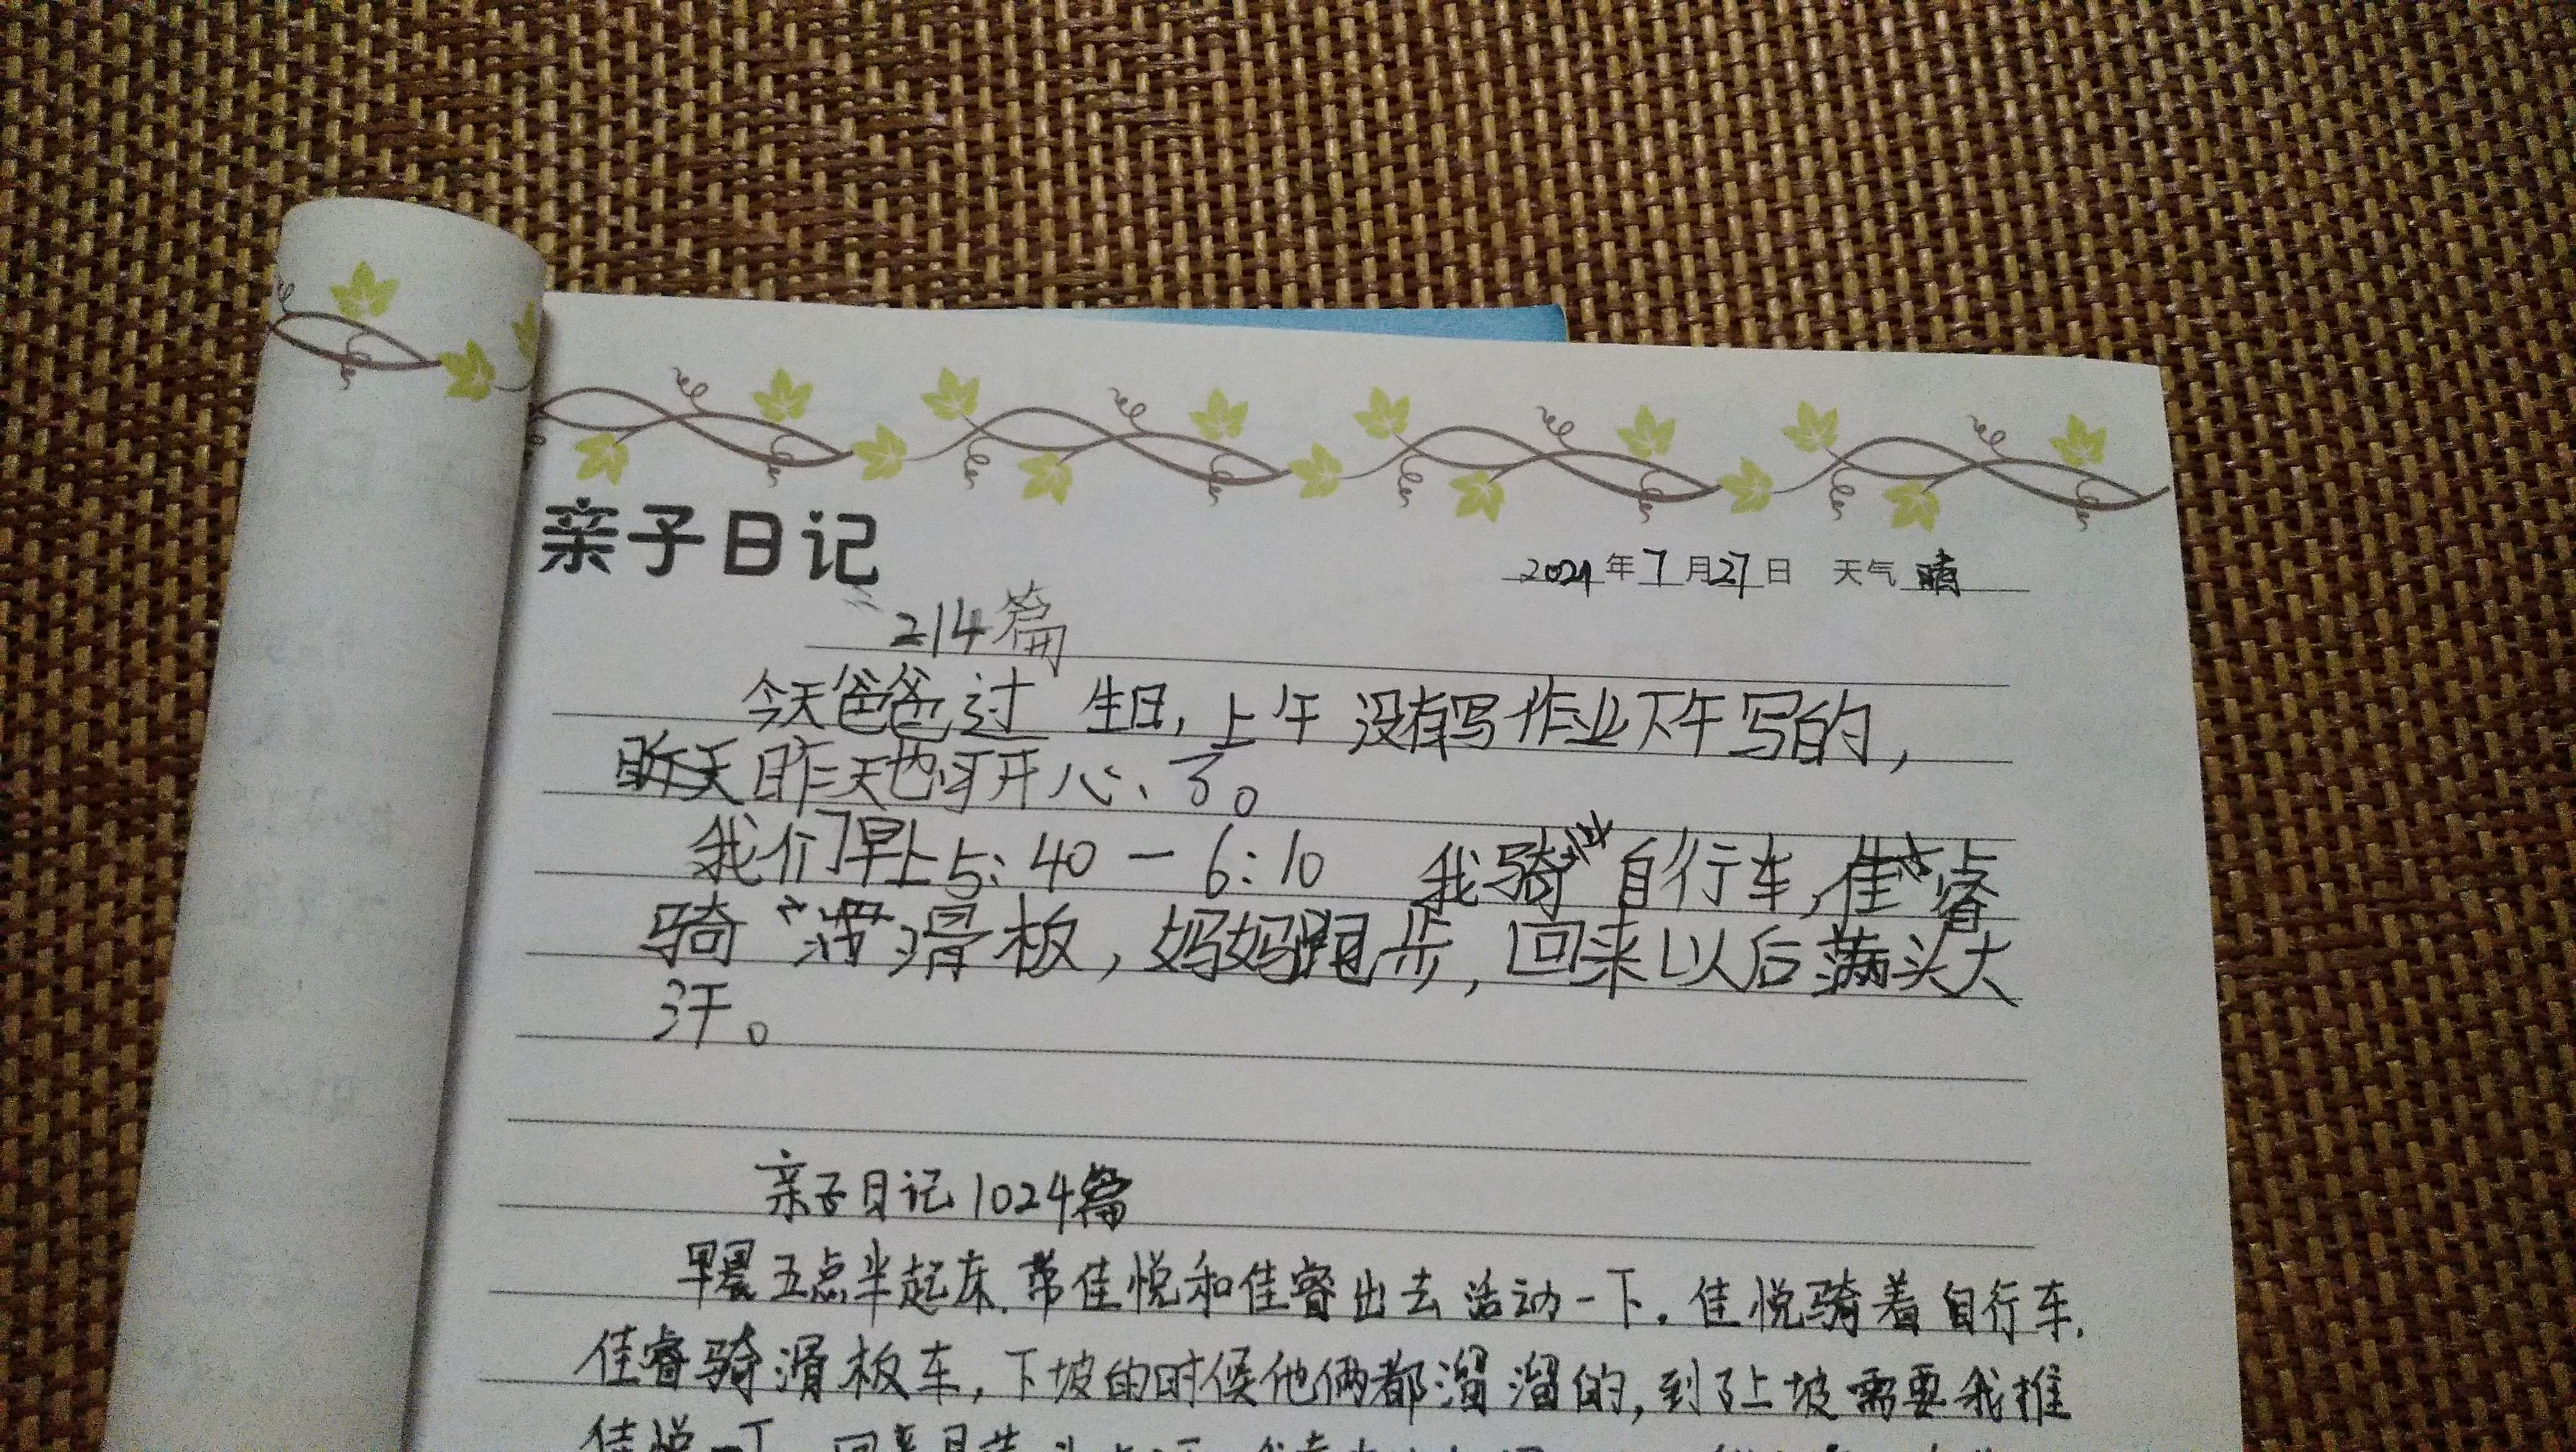 亲子日记
2021年7月27日 天气 晴
214篇
今天爸爸过生日,上午没有写作业下午写的,
昨天也可开心了。
我们早上5:40-6:10 我骑自行车,佳睿
骑滑板,妈妈跑步,回来以后满头大
汗。
亲子日记1024篇
早晨五点半起床.带佳悦和佳睿出去活动一下.佳悦骑着自行车.
佳睿骑滑板车,下坡的时候他俩都溜溜的,到了上坡需要我推
佳悦一下